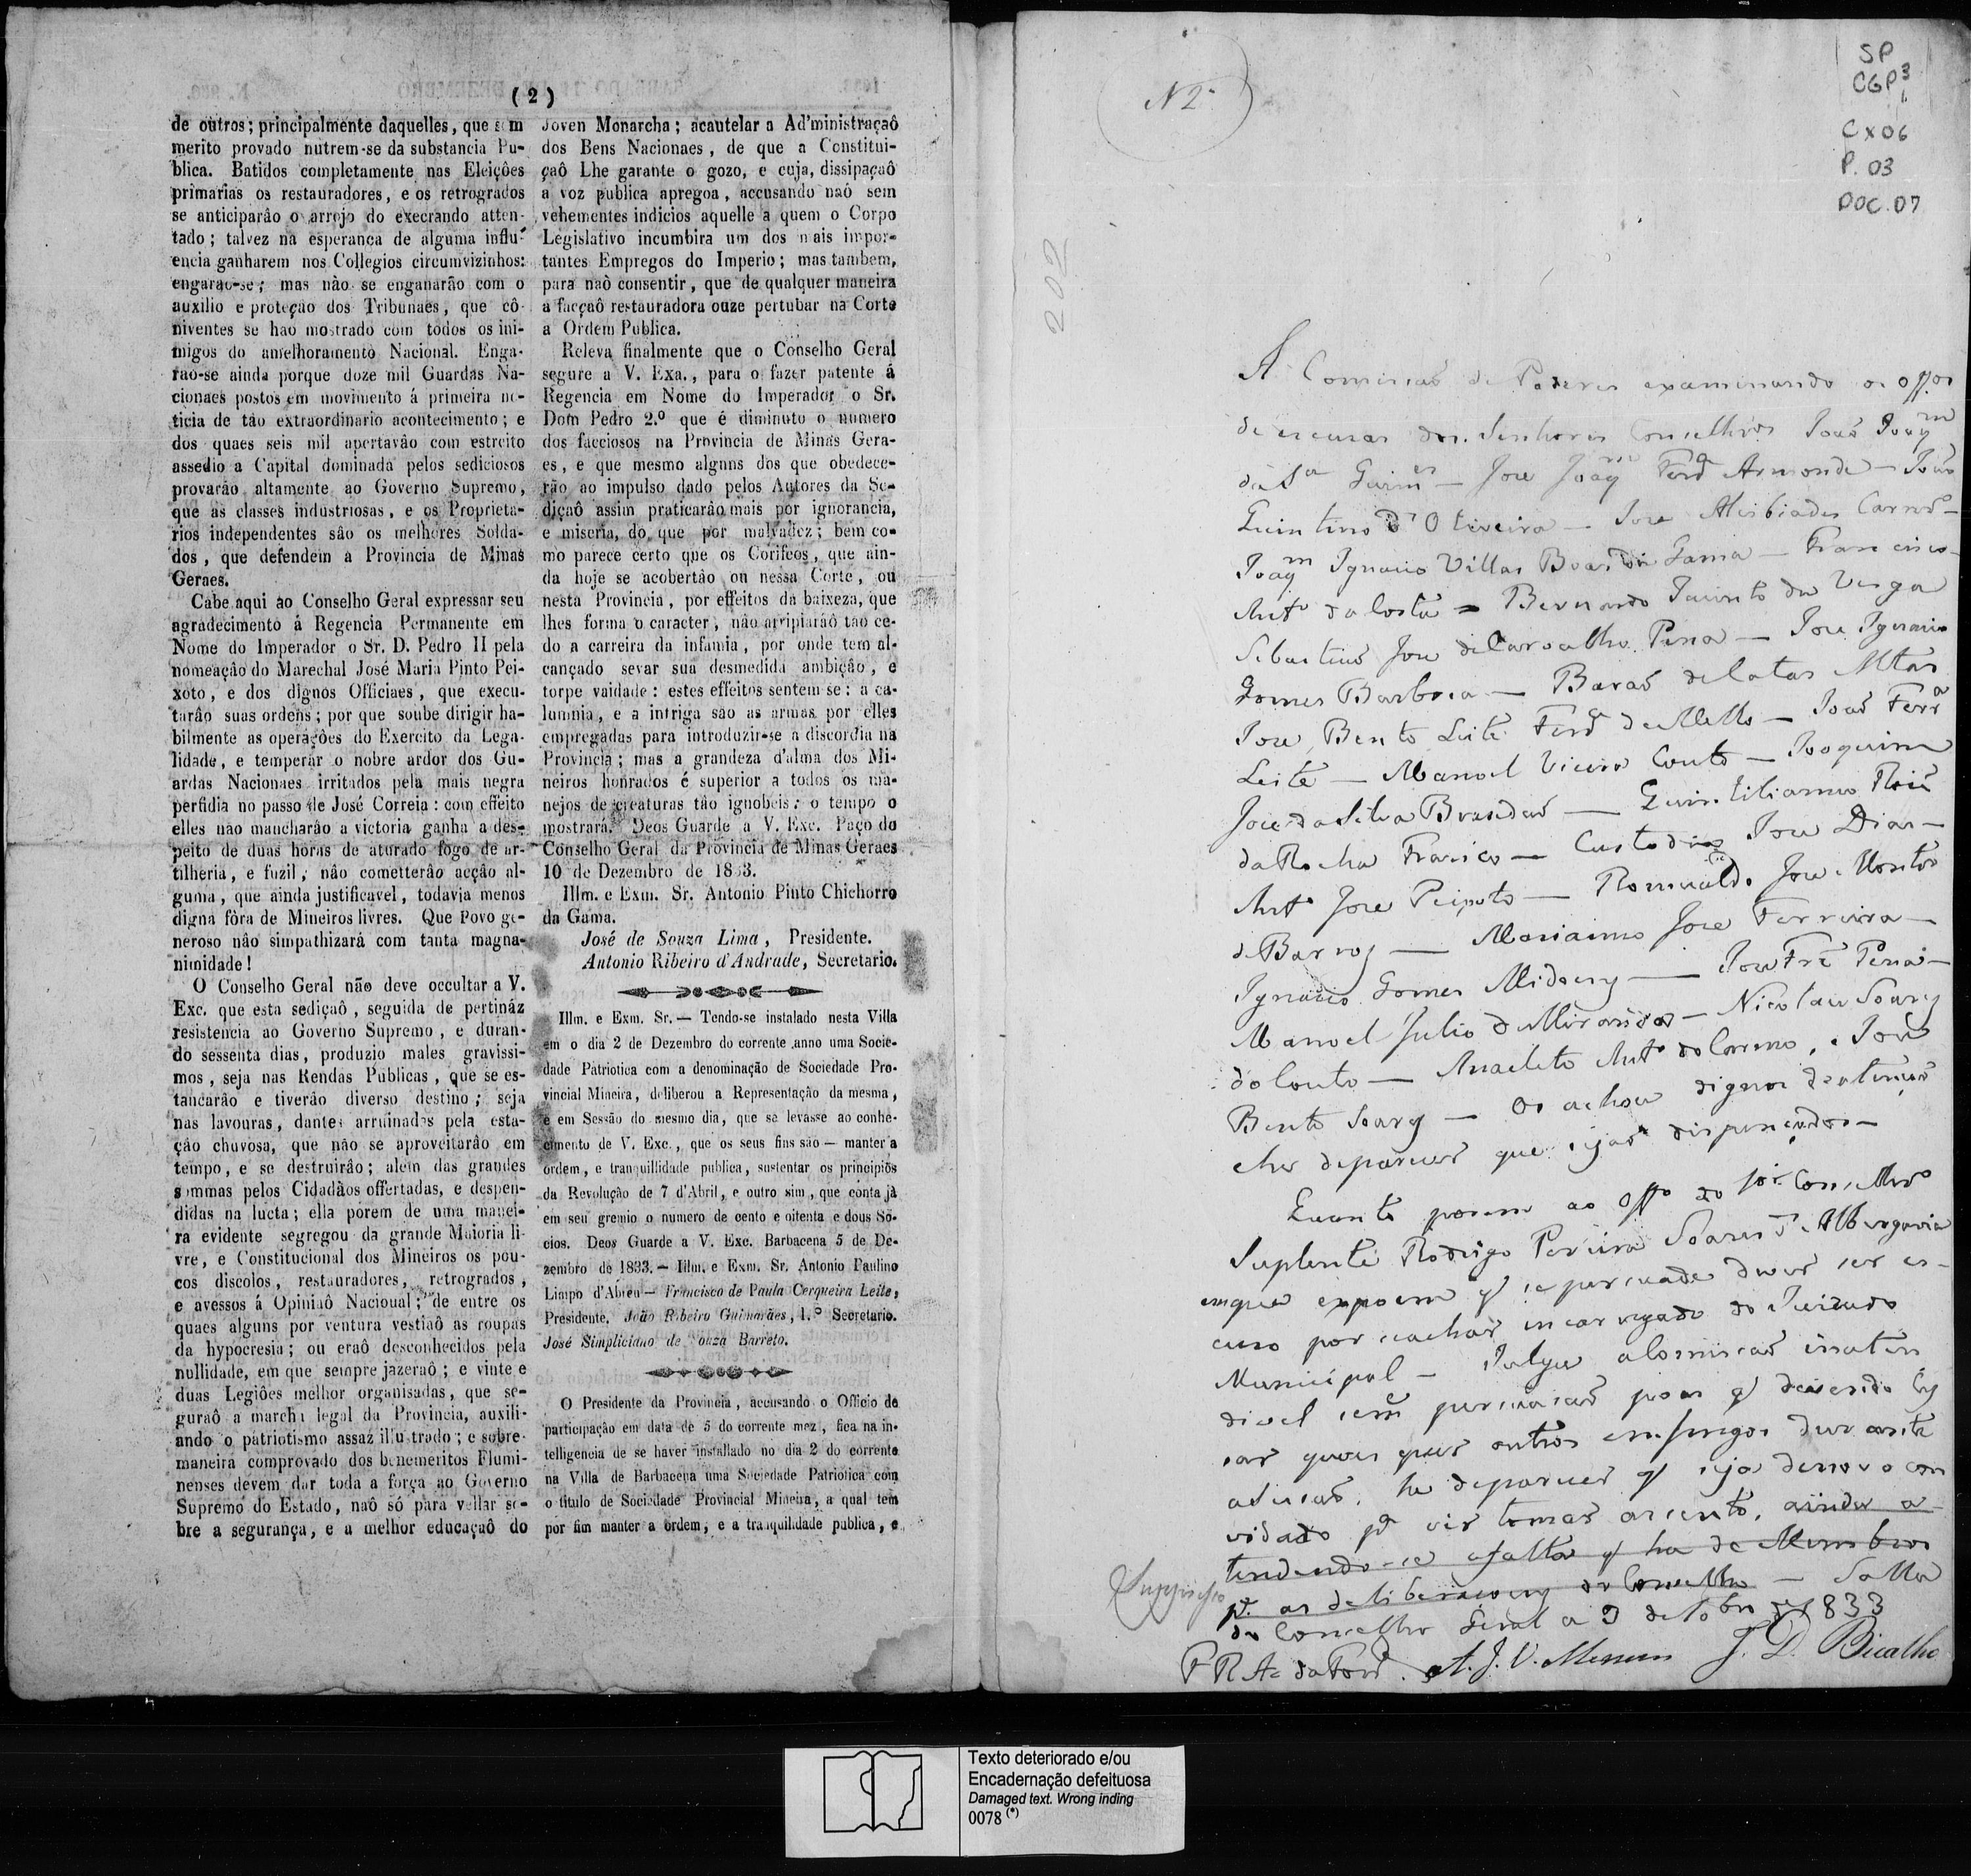 ( 2 )
de outros; principalmente daquelles, que sem
merito provado nutrem-se da substancia Pu-
blica. Batidos completamente nas Eleiçôes
primarias os restauradores, e os retrogrados
se anticiparâo o arrojo do execrando atten-
tado; talvez na esperança de alguma influ-
encia ganharem nos Collegios circumvizinhos:
engarão-se; mas nâo se enganarão com o
auxilio e proteçâo dos Tribunaes, que cô-
niventes se hão mostrado com todos os ini-
migos do amelhoramento Nacional. Enga-
rão-se ainda porque doze mil Guardas Na-
cionaes postos em movimento á primeira no-
ticia de tão extraordinario acontecimento; e
dos quaes seis mil apertavâo com estreito
assedio a Capital dominada pelos sediciosos
provarâo altamente ao Governo Supremo,
que as classes industriosas, e os Proprieta-
rios independentes sâo os melhores Solda-
dos, que defendem a Provincia de Minas
Geraes.
Cabe aqui ao Conselho Geral expressar seu
agradecimento á Regencia Permanente em
Nome do Imperador o Sr. D. Pedro II pela
nomeaçâo do Marechal José Maria Pinto Pei-
xoto, e dos dignos Officiaes, que execu-
tarâo suas ordens; por que soube dirigir ha-
bilmente as operaçôes do Exercito da Lega-
lidade, e temperar o nobre ardor dos Gu-
ardas Nacionaes irritados pela mais negra
perfidia no passo de José Correia: com effeito
elles nâo mancharâo a victoria ganha a des-
peito de duas horas de aturado fogo de ar-
tilheria, e fuzil, nâo cometterâo acçâo al-
guma, que ainda justificavel, todavia menos
digna fôra de Mineiros livres. Que Povo ge-
neroso nâo simpathizará com tanta magna-
nimidade!
O Conselho Geral não deve occultar a V.
Exc. que esta sediçaô, seguida de pertináz
resistencia ao Governo Supremo, e duran-
do sessenta dias, produzio males gravissi-
mos, seja nas Rendas Publicas, que se es-
tancarâo e tiverâo diverso destino; seja
nas lavouras, dantes arruinadas pela esta-
ção chuvosa, que nâo se aproveitarâo em
tempo, e se destruirâo; alem das grandes
sommas pelos Cidadâos offertadas, e despen-
didas na lucta; ella porem de uma manei-
ra evidente segregou da grande Maioria li-
vre, e Constitucional dos Mineiros os pou-
cos discolos, restauradores, retrogrados,
e avessos á Opiniaô Nacional; de entre os
quaes alguns por ventura vestiaô as roupas
da hypocresia; ou eraô desconhecidos pela
nullidade, em que sempre jazeraô; e vinte e
duas Legiôes melhor organisadas, que se-
guraô a marcha legal da Provincia, auxili-
ando o patriotismo assaz illustrado; e sobre-
maneira comprovado dos benemeritos Flumi-
nenses devem dar toda a força ao Governo
Supremo do Estado, naô só para vellar so-
bre a segurança, e a melhor educaçaô do
Joven Monarcha; acautelar a Ad'ministraçaô
dos Bens Nacionaes, de que a Constitui-
çaô Lhe garante o gozo, e cuja, dissipaçaô
a voz publica apregoa, accusando naô sem
vehementes indicios aquelle a quem o Corpo
Legislativo incumbira um dos mais impor-
tantes Empregos do Imperio; mas tambem,
para naò consentir, que de qualquer maneira
a facçaô restauradora ouze pertubar na Corte
a Ordem Publica.
Releva finalmente que o Conselho Geral
segure a V. Exa., para o fazer patente á
Regencia em Nome do Imperador o Sr.
Dom Pedro 2.º que é diminuto o numero
dos facciosos na Provincia de Minas Gera-
es, e que mesmo alguns dos que obedece-
rão ao impulso dado pelos Autores da Se-
diçaô assim praticarâo mais por ignorancia,
e miseria, do que por malvadez; bem co-
mo parece certo que os Corifeos, que ain-
da hoje se acobertâo ou nessa Corte, ou
nesta Provincia, por effeitos da baixeza, que
lhes forma o caracter, nâo arripiaráõ tão ce-
do a carreira da infamia, por onde tem al-
cançado sevar sua desmedida ambiçâo, e
torpe vaidade: estes effeitos sentem-se: a ca-
lumnia, e a intriga são as armas por elles
empregadas para introduzir-se a discordia na
Provincia; mas a grandeza d'alma dos Mi-
neiros honrados é superior a todos os ma-
nejos de creaturas tão ignobeis: o tempo o
mostrará. Deos Guarde a V. Exc. Paço do
Conselho Geral da Provincia de Minas Geraes
10 de Dezembro de 1833.
Illm. e Exm. Sr. Antonio Pinto Chichorro
da Gama.
José de Souza Lima, Presidente.
Antonio Ribeiro d'Andrade, Secretario.
Illm. e Exm. Sr. — Tendo-se instalado nesta Villa
em o dia 2 de Dezembro do corrente anno uma Socie-
dade Patriotica com a denominação de Sociedade Pro-
vincial Mineira, deliberou a Representação da mesma,
e em Sessão do mesmo dia, que se levasse ao conhe-
cimento de V. Exc., que os seus fins são — manter a
ordem, e tranquillidade publica, sustentar os principios
da Revolução de 7 d'Abril, e outro sim, que conta já
em seu gremio o numero de cento e oitenta e dous So-
cios. Deos Guarde a V. Exc. Barbacena 5 de De-
zembro de 1833. — Illm. e Exm. Sr. Antonio Paulino
Limpo d'Abreu — Francisco de Paula Cerqueira Leite,
Presidente. João Ribeiro Guimarães, 1.º Secretario.
José Simpliciano de Souza Barreto.
O Presidente da Provincia, accusando o Officio de
participação em data de 5 do corrente mez, fica na in-
telligencia de se haver installado no dia 2 do corrente
na Villa de Barbacena uma Sociedade Patriotica com
o titulo de Sociedade Provincial Mineira, a qual tem
por fim manter a ordem, e a tranquilidade publica, e
N 2
SP
CGP 3
CX 06
P. 03
DOC. 07
202
A Comissaõ de Poderes examinando os offos
de escusas dos Senhores Conselhros Joaõ Joaqm
da Sa Guimes — Jose Joaqm Ferd Armonde — Joaõ
Quintino d'Oliveira — Jose Alcibiades Carnro —
Joaqm Ignacio Villas Boas da Gama — Francisco
Anto da Costa = Bernardo Jacinto da Veiga
Sebastiaõ Jose de Carvalho Pena — Jose Ignacio
Gomes Barbosa — Baraõ de Catas Altas
Jose Bento Leite Ferra de Mello — Joaõ Ferra
Leite — Manoel Vieira Couto — Joaquim
Jose da Silva Brandaõ — Quintiliano
da Rocha Franco — Custodio Jose Dias —
Anto Jose Peixoto — Romualdo Jose Monteiro
de Barros — Marianno Jose Ferreira —
Ignacio Gomes Midoens — Pena —
Manoel Julio de Miranda — Nicolau Soares
do Couto — Anacleto Anto do Carmo, e Jose
Bento Soares — os achou dignos de atençaõ
e he de parecer que sejaõ dispensados —
Quanto porem ao offo do Sor Conselhro
Suplente Rodrigo Pereira Soares d'Albergaria
em que expoem q se persuade dever ser es-
cuso por se achar encarregado do Juizado
Municipal — Julga a Comissaõ inaten
divel sem persuasaõ pois q devendo ces
sar quaes quer outros empregos durante
a Sessaõ, he de parecer q seja de novo con
vidado pa vir tomar assento, ainda a
tendendo-se a falta q ha de Membros
pa as deliberaçoens do Conselho — Salla
do Conselho Geral a 9 de Xbro de 1833
Suppresso
A. J. V. Menezes J. D. Bicalho
Texto deteriorado e/ou
Encadernação defeituosa
Damaged text. Wrong inding
0078 (*)